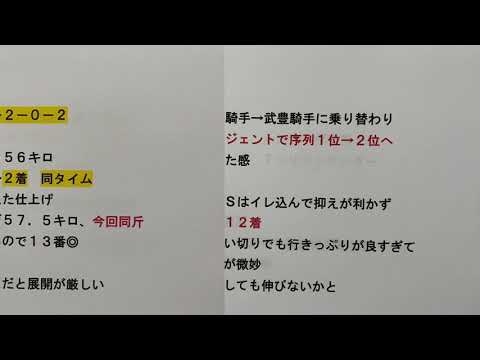 ２－０－２
５６キロ
２着　同タイム
た仕上げ
５７．５キロ、今回同斤
ので１３番◎
だと展開が厳しい
騎手→武豊騎手に乗り替わり
ジェントで序列１位→２位へ
た感
Ｓはイレ込んで抑えが利かず
１２着
い切りでも行きっぷりが良すぎて
が微妙
しても伸びないかと